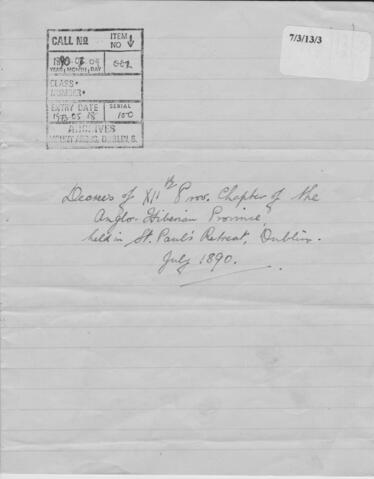 7/3/13/3
CALL Nº ITEM NO ↓
1890-07-09
YEAR, MONTH, DAY
CLASS-
NUMBER-
ENTRY DATE SERIAL
100
ARCHIVES
MOUNT ARGUS, DUBLIN, 6.
Decrees of XIIth Prov. Chapter of the
Anglo-Hibernian Province,
held in St. Paul's Retreat, Dublin.
July 1890.